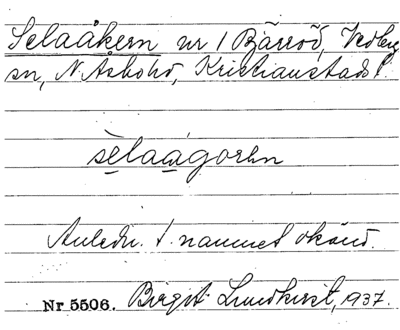 Selaåkern nr 1 Bjärröd, Vedby
sn, N. Åsbohd, Kristianstads l.
sèlaágorhn
Anledn. t. namnet okänd.
Nr 5506. Birgit Lundkvist, 1937.